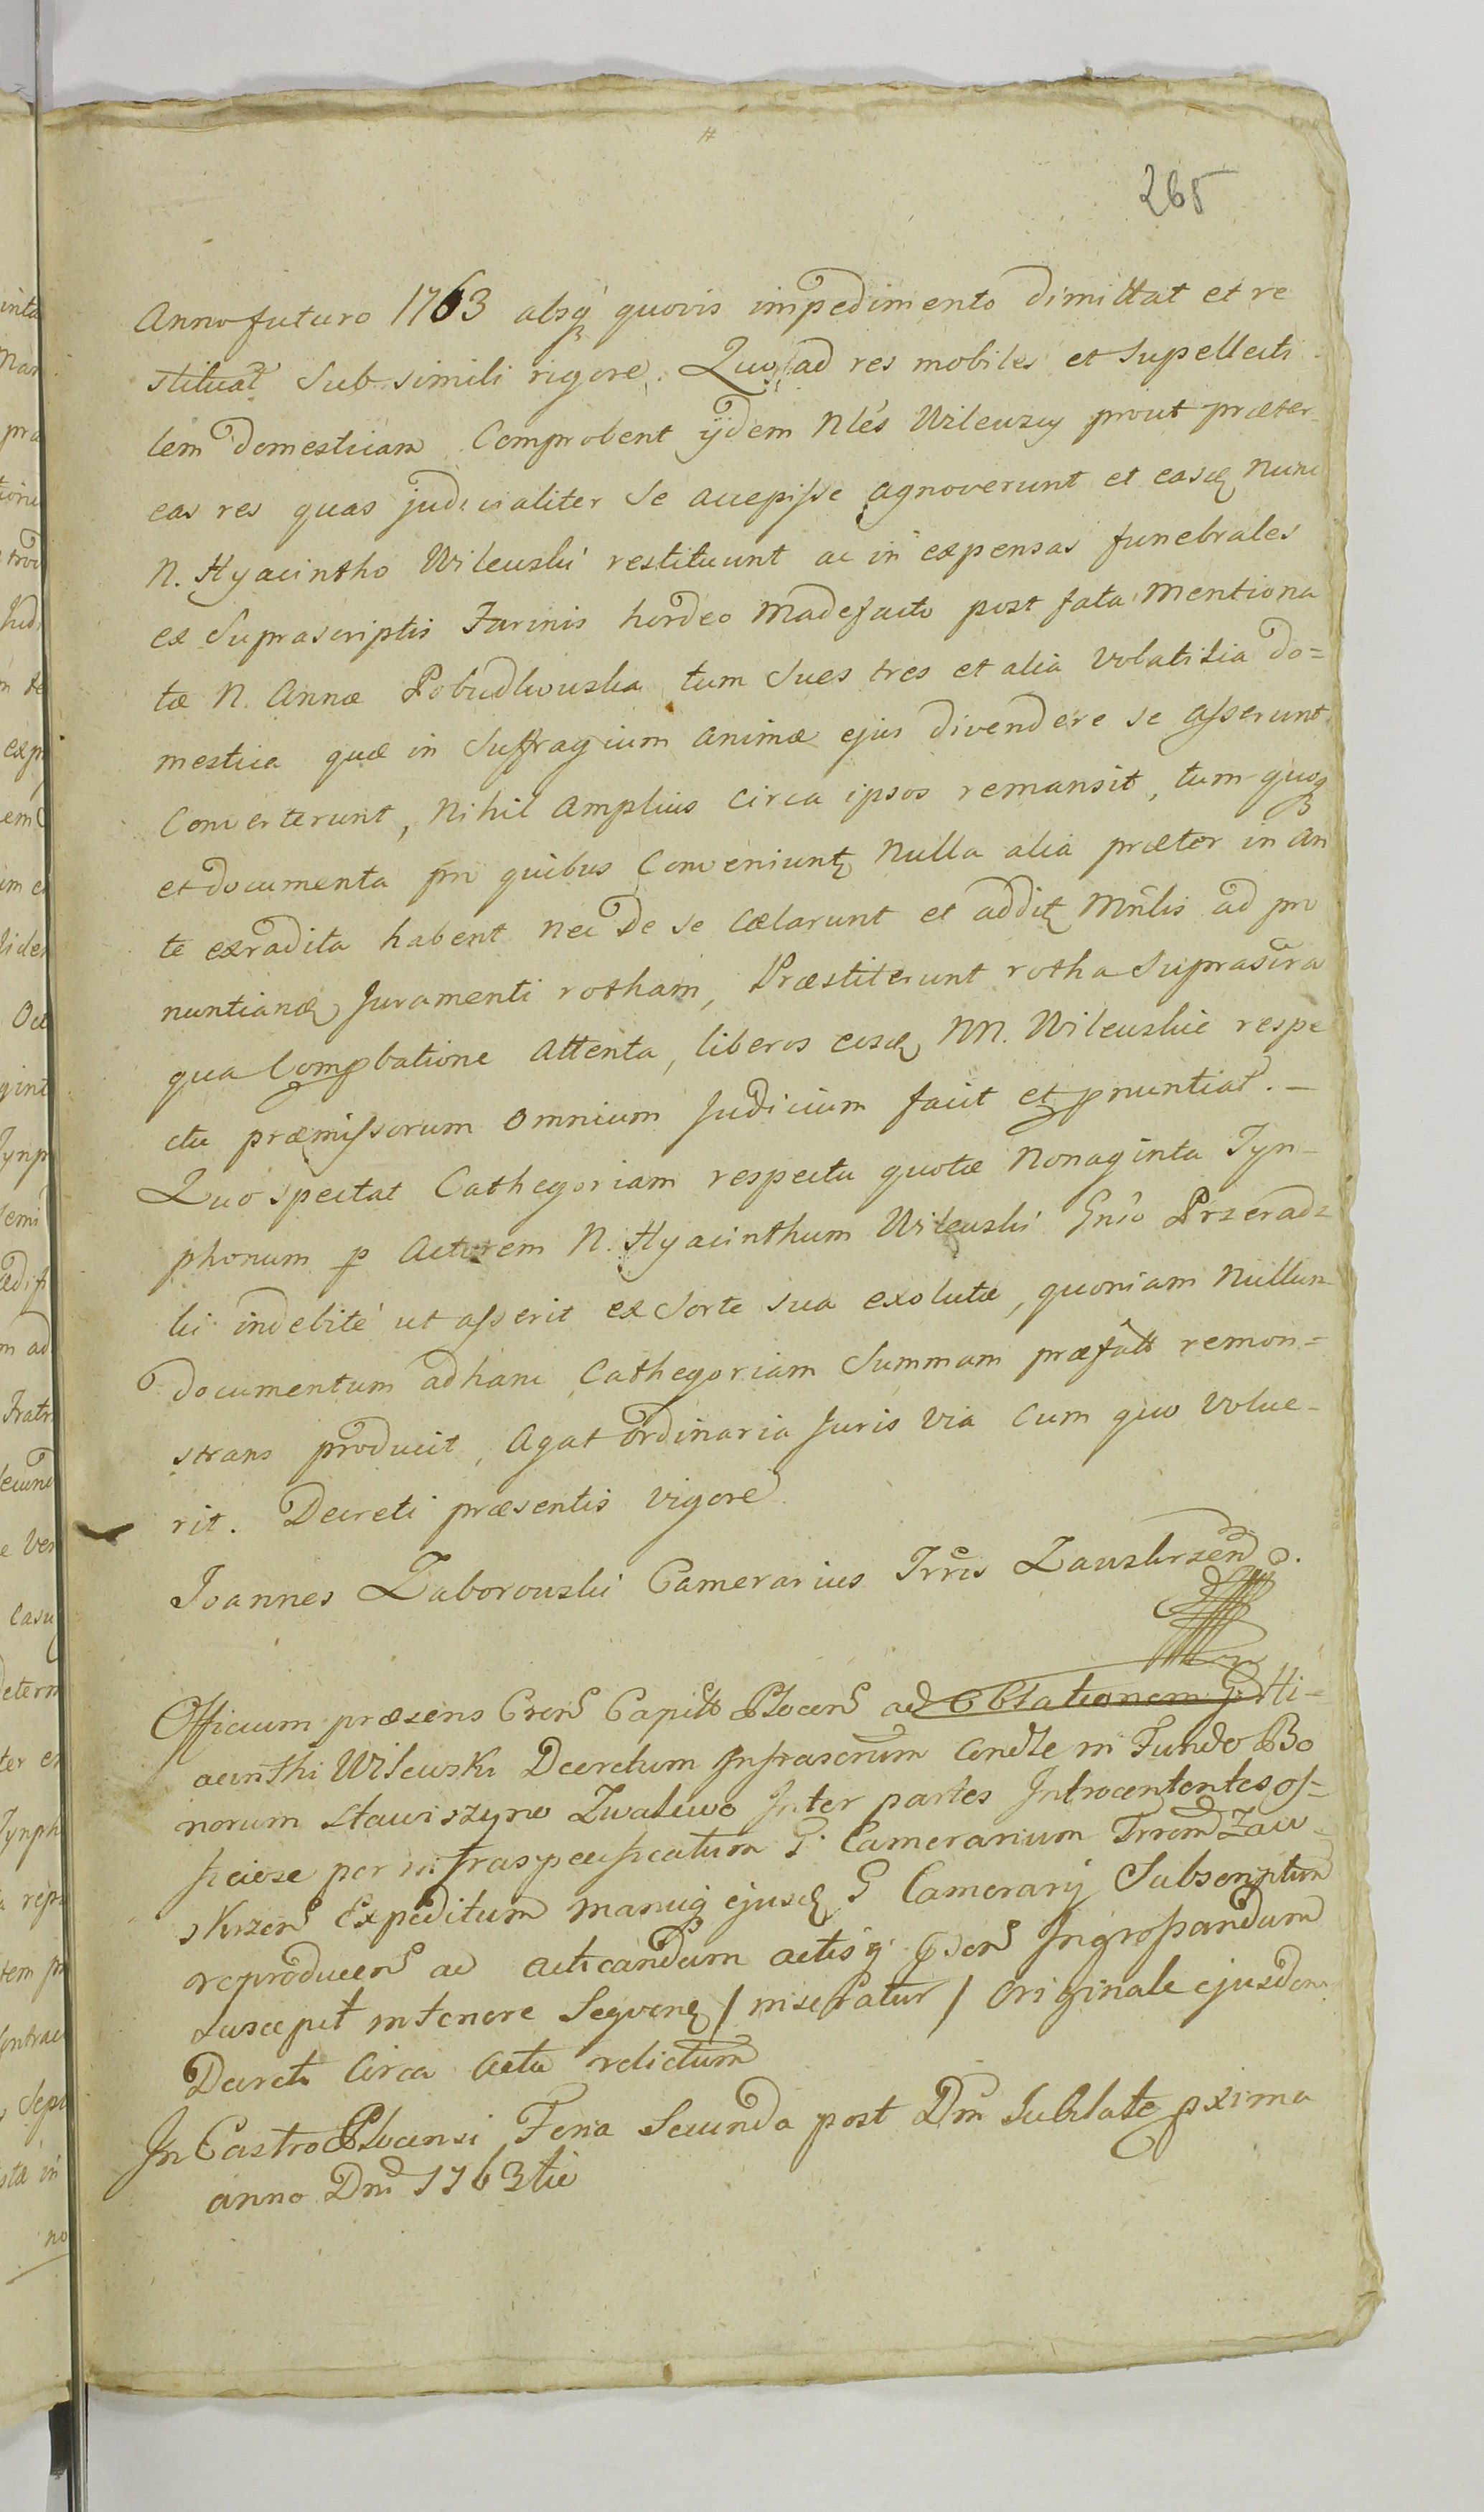 265
Anno futuro 1763 absq quovis impedimento dimittat et re
stituat sub simili rigore. Quo ad res mobiles et supellecti
lem domesticam Comprobent ijdem Nles Wilewscy prout præter
eas res quas judicialiter se accepisse agnoverunt et easd nunc
N. Hyacintho Wilewski restituunt ac in expensas funebrales
ex suprascriptis Farinis hordeo madefacto post fata mentiona
tæ N. Annæ Pobudkowska tum sues tres et alia volatilia do=
mestica quæ in suffragium animæ ejus divendere se asserunt
Converterunt, nihil amplius circa ipsos remansit, tum quoq
et documenta pro quibus Conveniunt nulla alia præter in an
te extradita habent nec de se cælarunt et addit Mnlis ad pro
nuntiand Juramenti rotham, Præstiterunt rotha suprascra
qua Compbatione attenta, liberos eosd NN. Wilewskie respe
ctu præmissorum omnium Judicium facit et pnuntiat. —
Quo spectat Cathegoriam respectu quotæ nonaginta Tyn-
phonum p Actorem N. Hyacinthum Wilewski Gnso Przeradz
ki indebité ut asserit ex sorte sua exolutæ, quoniam nullum
documentum ad hanc Cathegoriam summam præfatt remon=
strans producit, Agat ordinaria Juris via cum quo volue-
rit. Decreti præsentis vigore
Joannes Zaborowski Camerarius Trris Zawskrzen.
Officium præsens Cren Capitt Plocen ad Oblationem G Hi-
acinthi Wilewski Decretum Infrascrum Condle in Fundo Bo
norum Stawiszyno Zwalewo Inter partes Introcententes of=
ficiose per infraspecificatum G. Camerarium Trrem Zaw
skrzen Expeditum manuq ejusd G Camerarij Subscriptum
reproducen ad acticandum actisq Ingrossandum
suscepit in tenore Sequen / inseratur / Originale ejusdem
Decreti Circa Acta relictum
In Castro Plocensi Feria Secunda post Dm Jubilate pxima
anno Dni 1763tio